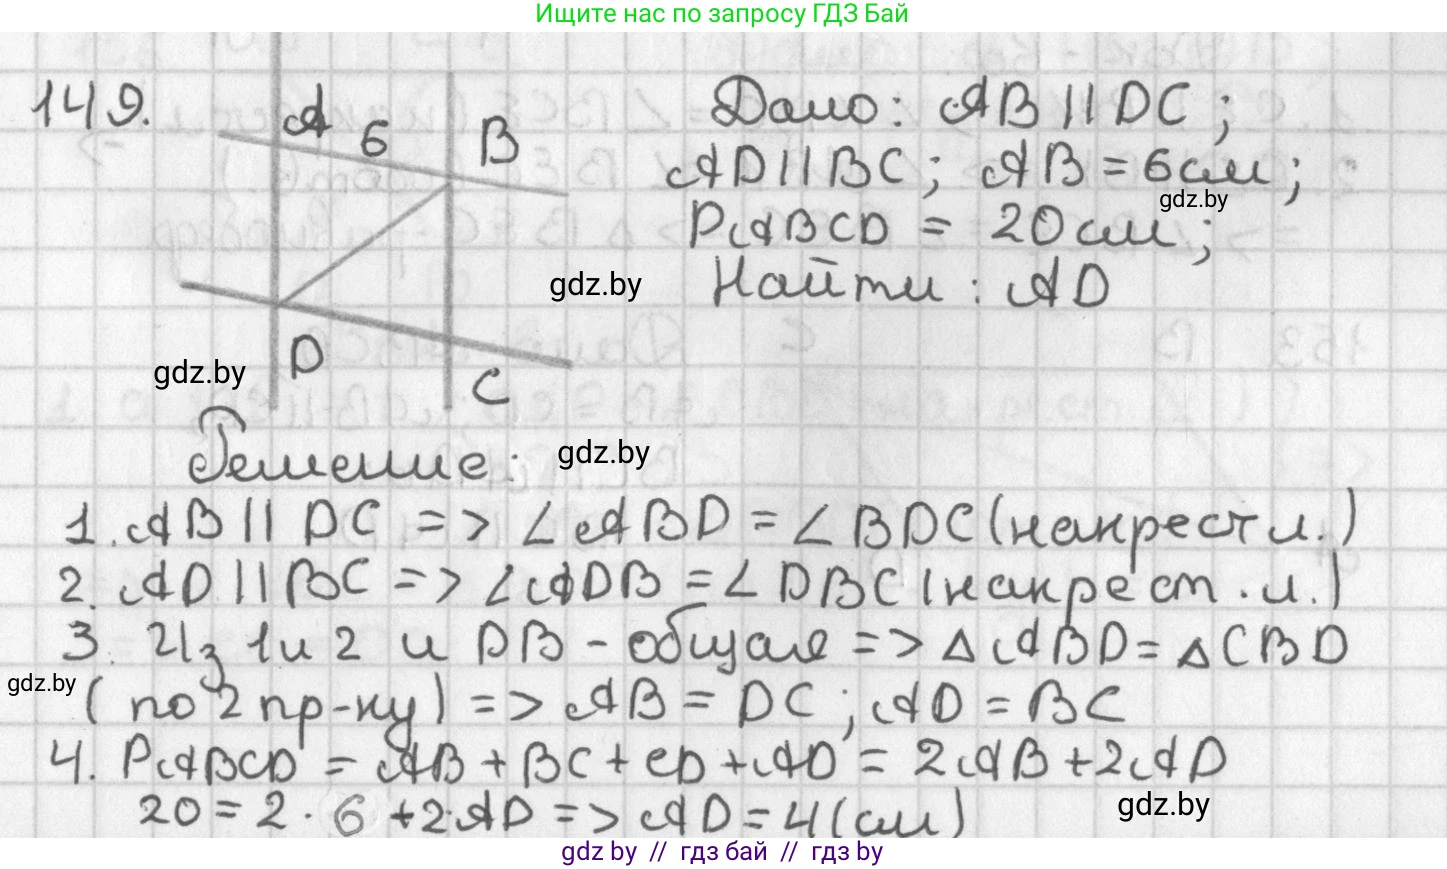 Ищите нас по запросу ГДЗ Бай
149.
A 6 B
D C
Дано: AB || DC ;
AD || BC ; AB = 6 см ;
gdz.by
PABCD = 20 см ;
gdz.by
Найти : AD
gdz.by
Решение :
gdz.by
1. AB || DC => ∠ABD = ∠BDC (накрест л.)
2. AD || BC => ∠ADB = ∠DBC (накрест. л.)
3. Из 1 и 2 и DB - общая => △ABD = △CBD
gdz.by
( по 2 пр-ку) => AB = DC ; AD = BC
4. PABCD = AB + BC + CD + AD = 2AB + 2AD
gdz.by
20 = 2 · 6 + 2·AD => AD = 4 (см)
gdz by // гдз бай // гдз by